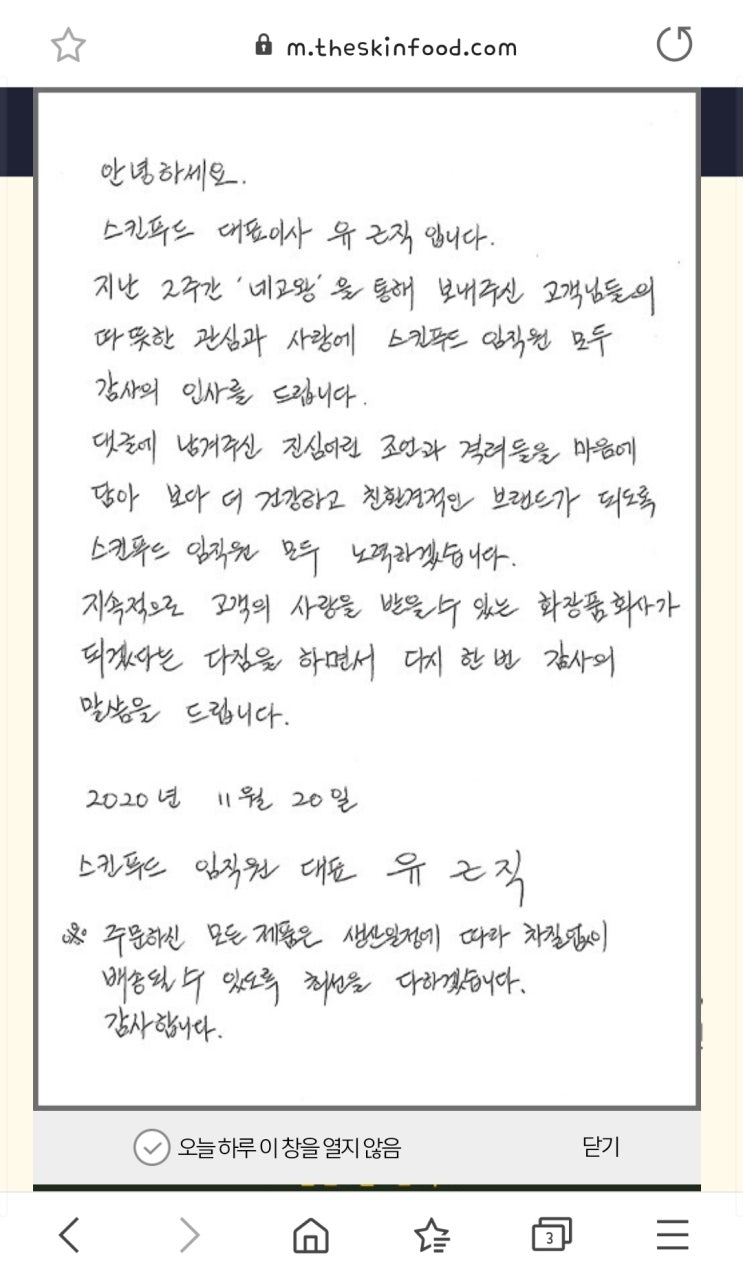 m.theskinfood.com
안녕하세요.
스킨푸드 대표이사 유근직 입니다.
지난 2주간 '네고왕'을 통해 보내주신 고객님들의
따뜻한 관심과 사랑에 스킨푸드 임직원 모두
감사의 인사를 드립니다.
댓글에 남겨주신 진심어린 조언과 격려들을 마음에
담아 보다 더 건강하고 친환경적인 브랜드가 되도록
스킨푸드 임직원 모두 노력하겠습니다.
지속적으로 고객의 사랑을 받을 수 있는 화장품회사가
되겠다는 다짐을 하면서 다시 한번 감사의
말씀을 드립니다.
2020년 11월 20일
스킨푸드 임직원 대표 유근직
※ 주문하신 모든 제품은 생산일정에 따라 차질없이
배송될 수 있도록 최선을 다하겠습니다.
감사합니다.
오늘 하루 이 창을 열지 않음 닫기
3